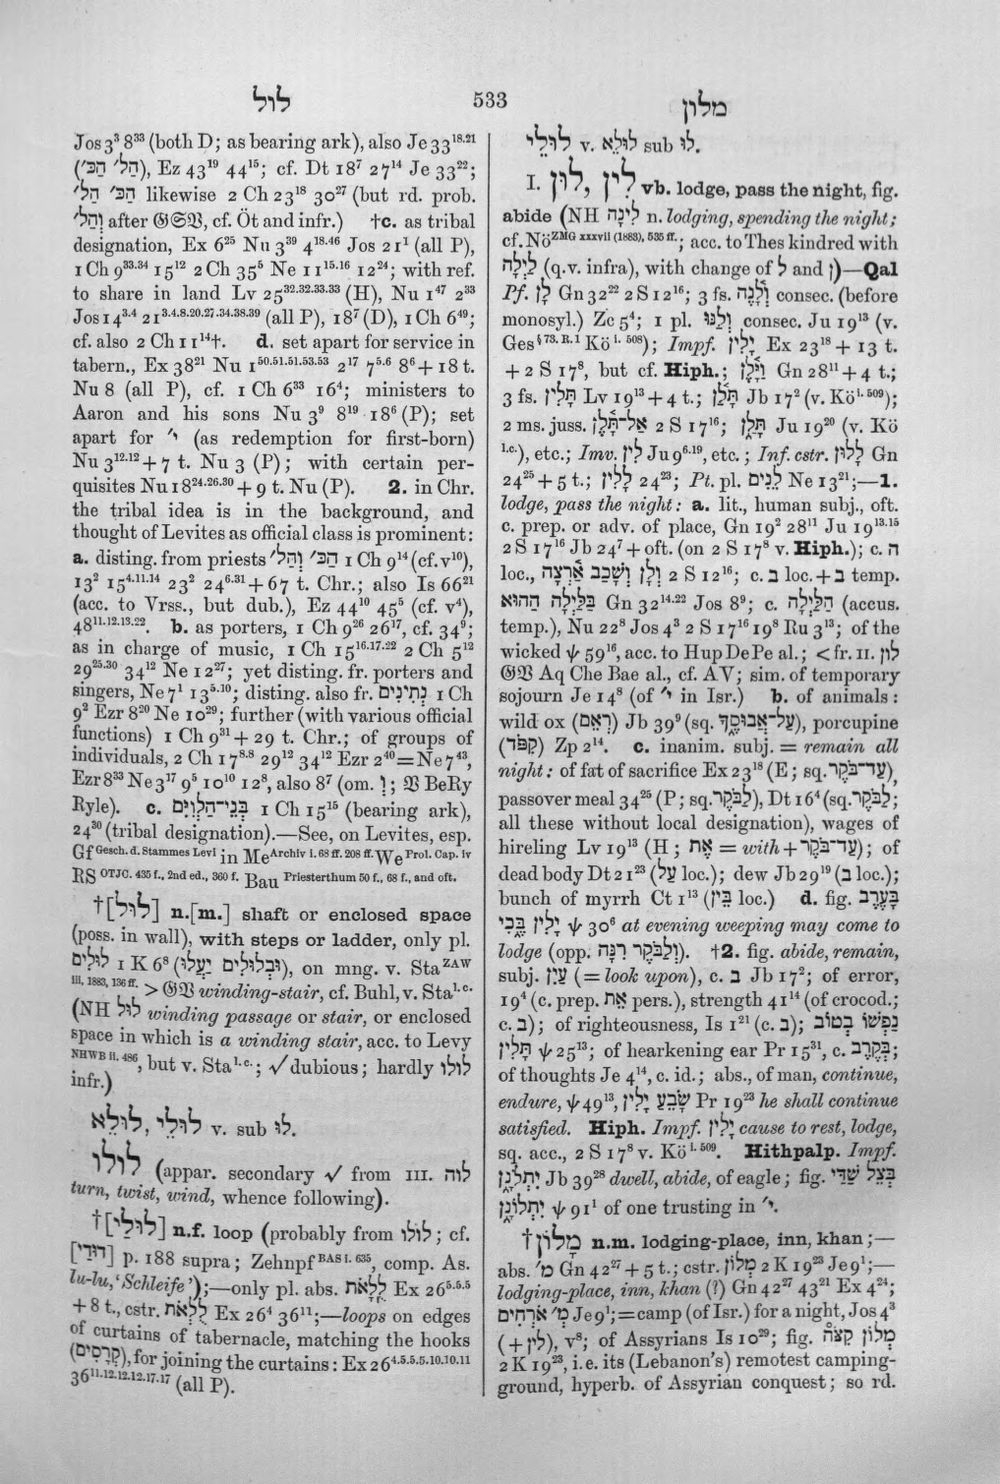 לול
533
מלון
Jos 3³ 8³³ (both D; as bearing ark), also Je 33¹⁸·²¹
(הל׳ הכ׳), Ez 43¹⁹ 44¹⁵; cf. Dt 18⁷ 27¹⁴ Je 33²²;
הכ׳ הל׳ likewise 2 Ch 23¹⁸ 30²⁷ (but rd. prob.
והל׳ after 𝔊𝔖𝔙, cf. Öt and infr.) †c. as tribal
designation, Ex 6²⁵ Nu 3³⁹ 4¹⁸·⁴⁶ Jos 21¹ (all P),
1 Ch 9³³·³⁴ 15¹² 2 Ch 35⁵ Ne 11¹⁵·¹⁶ 12²⁴; with ref.
to share in land Lv 25³²·³²·³³·³³ (H), Nu 1⁴⁷ 2³³
Jos 14³·⁴ 21³·⁴·⁸·²⁰·²⁷·³⁴·³⁸·³⁹ (all P), 18⁷ (D), 1 Ch 6⁴⁹;
cf. also 2 Ch 11¹⁴†. d. set apart for service in
tabern., Ex 38²¹ Nu 1⁵⁰·⁵¹·⁵¹·⁵³·⁵³ 2¹⁷ 7⁵·⁶ 8⁶ + 18 t.
Nu 8 (all P), cf. 1 Ch 6³³ 16⁴; ministers to
Aaron and his sons Nu 3⁹ 8¹⁹ 18⁶ (P); set
apart for י׳ (as redemption for first-born)
Nu 3¹²·¹² + 7 t. Nu 3 (P); with certain per-
quisites Nu 18²⁴·²⁶·³⁰ + 9 t. Nu (P). 2. in Chr.
the tribal idea is in the background, and
thought of Levites as official class is prominent:
a. disting. from priests הכ׳ והל׳ 1 Ch 9¹⁴ (cf. v¹⁰),
13² 15⁴·¹¹·¹⁴ 23² 24⁶·³¹ + 67 t. Chr.; also Is 66²¹
(acc. to Vrss., but dub.), Ez 44¹⁰ 45⁵ (cf. v⁴),
48¹¹·¹²·¹³·²². b. as porters, 1 Ch 9²⁶ 26¹⁷, cf. 34⁹;
as in charge of music, 1 Ch 15¹⁶·¹⁷·²² 2 Ch 5¹²
29²⁵·³⁰ 34¹² Ne 12²⁷; yet disting. fr. porters and
singers, Ne 7¹ 13⁵·¹⁰; disting. also fr. נְתִינִים 1 Ch
9² Ezr 8²⁰ Ne 10²⁹; further (with various official
functions) 1 Ch 9³¹ + 29 t. Chr.; of groups of
individuals, 2 Ch 17⁸·⁸ 29¹² 34¹² Ezr 2⁴⁰ = Ne 7⁴³,
Ezr 8³³ Ne 3¹⁷ 9⁵ 10¹⁰ 12⁸, also 8⁷ (om. וְ; 𝔙 BeRy
Ryle). c. בְּנֵי־הַלְוִיִּם 1 Ch 15¹⁵ (bearing ark),
24³⁰ (tribal designation).—See, on Levites, esp.
Gf Gesch. d. Stammes Levi in Me Archiv i. 68 ff. 208 ff. We Prol. Cap. iv
RS OTJC. 435 f., 2nd ed., 360 f. Bau Priesterthum 50 f., 68 f., and oft.
†[לוּל] n.[m.] shaft or enclosed space
(poss. in wall), with steps or ladder, only pl.
לוּלִים 1 K 6⁸ (וּבְלוּלִים יַעֲלוּ), on mng. v. Sta ZAW
iii, 1883, 136 ff. > 𝔊𝔙 winding-stair, cf. Buhl, v. Sta l.c.
(NH לוּל winding passage or stair, or enclosed
space in which is a winding stair, acc. to Levy
NHWB ii. 486, but v. Sta l.c.; √ dubious; hardly לולו
infr.)
לוּלֵי, לוּלֵא v. sub לוּ.
לולו (appar. secondary √ from III. לוה
turn, twist, wind, whence following).
†[לוּלַי] n.f. loop (probably from לולו; cf.
[דּוּדַי] p. 188 supra; Zehnpf BAS i. 635, comp. As.
lu-lu, ‘Schleife’);—only pl. abs. לֻלָאֹת Ex 26⁵·⁵·⁵
+ 8 t., cstr. לֻלְאֹת Ex 26⁴ 36¹¹;—loops on edges
of curtains of tabernacle, matching the hooks
(קְרָסִים), for joining the curtains: Ex 26⁴·⁵·⁵·⁵·¹⁰·¹⁰·¹¹
36¹¹·¹²·¹²·¹²·¹⁷·¹⁷ (all P).
לוּלֵי v. לוּלֵא sub לוּ.
I. לִין, לוּן vb. lodge, pass the night, fig.
abide (NH לִינָה n. lodging, spending the night;
cf. Nö ZMG xxxvii (1883), 535 ff.; acc. to Thes kindred with
לַיְלָה (q.v. infra), with change of ל and ן)—Qal
Pf. לָן Gn 32²² 2 S 12¹⁶; 3 fs. וְלָנֶה consec. (before
monosyl.) Zc 5⁴; 1 pl. וְלַנּוּ consec. Ju 19¹³ (v.
Ges § 73. R. 1 Kö i. 508); Impf. יָלִין Ex 23¹⁸ + 13 t.
+ 2 S 17⁸, but cf. Hiph.; וַיָּלֶן Gn 28¹¹ + 4 t.;
3 fs. תָּלִין Lv 19¹³ + 4 t.; תָּלַן Jb 17² (v. Kö i. 509);
2 ms. juss. אַל־תָּלֶן 2 S 17¹⁶; תָּלַן Ju 19²⁰ (v. Kö
l.c.), etc.; Imv. לִין Ju 9⁶·¹⁹, etc.; Inf. cstr. לָלוּן Gn
24²⁵ + 5 t.; לָלִין 24²³; Pt. pl. לָנִים Ne 13²¹;—1.
lodge, pass the night: a. lit., human subj., oft.
c. prep. or adv. of place, Gn 19² 28¹¹ Ju 19¹³·¹⁵
2 S 17¹⁶ Jb 24⁷ + oft. (on 2 S 17⁸ v. Hiph.); c. ה
loc., וְלָן וְשָׁכַב אָרְצָה 2 S 12¹⁶; c. ב loc. + ב temp.
בַּלַּיְלָה הַהוּא Gn 32¹⁴·²² Jos 8⁹; c. הַלַּיְלָה (accus.
temp.), Nu 22⁸ Jos 4³ 2 S 17¹⁶ 19⁸ Ru 3¹³; of the
wicked ψ 59¹⁶, acc. to Hup De Pe al.; < fr. II. לון
𝔊𝔙 Aq Che Bae al., cf. AV; sim. of temporary
sojourn Je 14⁸ (of י׳ in Isr.) b. of animals:
wild ox (רְאֵם) Jb 39⁹ (sq. עַל־אֲבוּסֶךָ), porcupine
(קִפֹּד) Zp 2¹⁴. c. inanim. subj. = remain all
night: of fat of sacrifice Ex 23¹⁸ (E; sq. עַד־בֹּקֶר),
passover meal 34²⁵ (P; sq. לַבֹּקֶר), Dt 16⁴ (sq. לַבֹּקֶר;
all these without local designation), wages of
hireling Lv 19¹³ (H; אֵת = with + עַד־בֹּקֶר); of
dead body Dt 21²³ (עַל loc.); dew Jb 29¹⁹ (ב loc.);
bunch of myrrh Ct 1¹³ (בֵּין loc.) d. fig. בָּעֶרֶב
יָלִין בֶּכִי ψ 30⁶ at evening weeping may come to
lodge (opp. וְלַבֹּקֶר רִנָּה). †2. fig. abide, remain,
subj. עַיִן (= look upon), c. ב Jb 17²; of error,
19⁴ (c. prep. אֵת pers.), strength 41¹⁴ (of crocod.;
c. ב); of righteousness, Is 1²¹ (c. ב); נַפְשׁוֹ בְּטוֹב
תָּלִין ψ 25¹³; of hearkening ear Pr 15³¹, c. בְּקֶרֶב;
of thoughts Je 4¹⁴, c. id.; abs., of man, continue,
endure, ψ 49¹³, שָׂבֵעַ יָלִין Pr 19²³ he shall continue
satisfied. Hiph. Impf. יָלִין cause to rest, lodge,
sq. acc., 2 S 17⁸ v. Kö i. 509. Hithpalp. Impf.
יִתְלֹנָן Jb 39²⁸ dwell, abide, of eagle; fig. בְּצֵל שַׁדַּי
יִתְלוֹנָן ψ 91¹ of one trusting in י׳.
†מָלוֹן n.m. lodging-place, inn, khan;—
abs. מ׳ Gn 42²⁷ + 5 t.; cstr. מְלוֹן 2 K 19²³ Je 9¹;—
lodging-place, inn, khan (?) Gn 42²⁷ 43²¹ Ex 4²⁴;
מ׳ אֹרְחִים Je 9¹; = camp (of Isr.) for a night, Jos 4³
(+ לִין), v⁸; of Assyrians Is 10²⁹; fig. מְלוֹן קִצֹּה
2 K 19²³, i.e. its (Lebanon’s) remotest camping-
ground, hyperb. of Assyrian conquest; so rd.